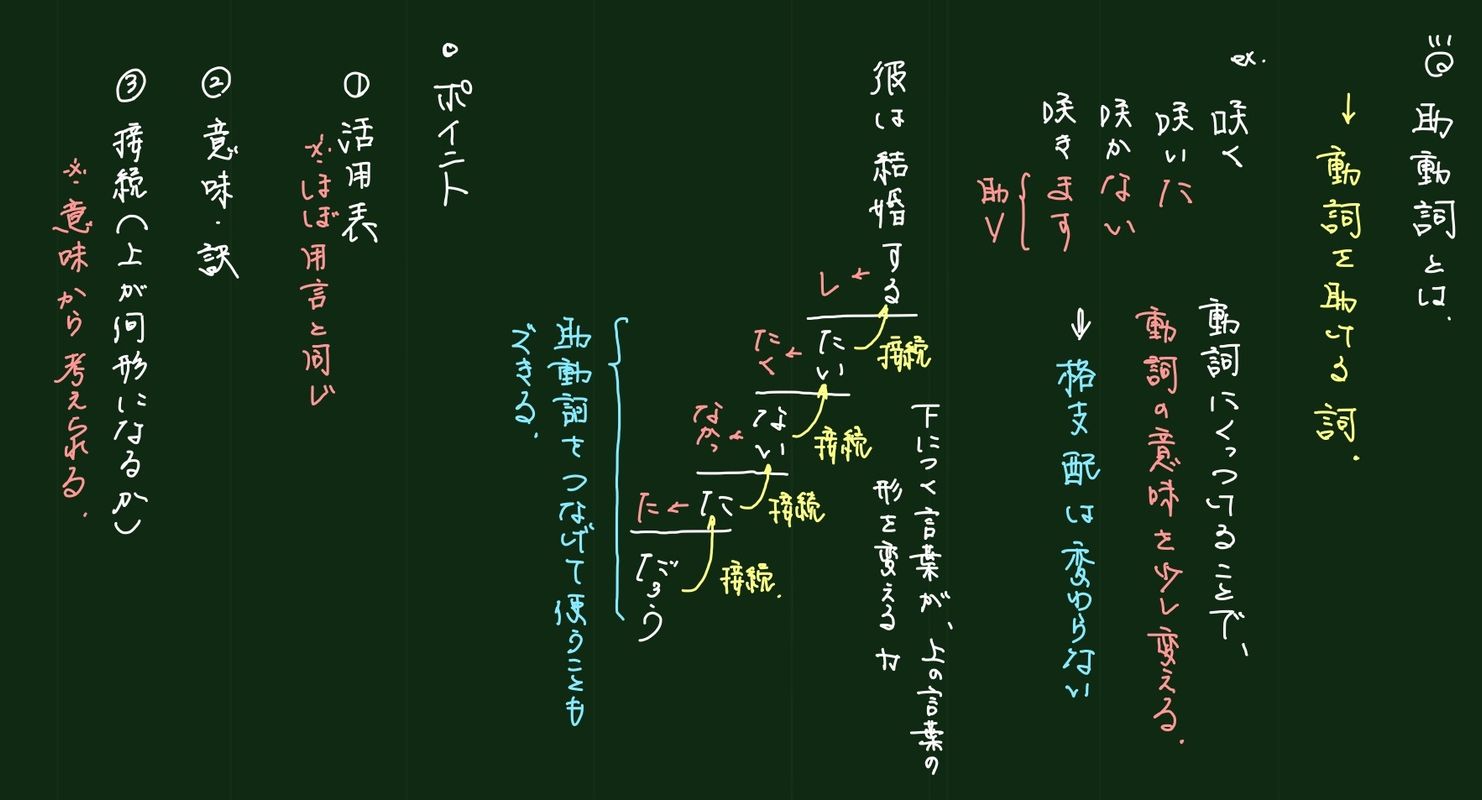 助動詞とは.
↓ 動詞を助ける詞.
ex.
咲く
咲いた
咲かない
咲きます
助V
動詞にくっつけることで、
動詞の意味を少し変える.
⇓ 格支配は変わらない
下につく言葉が、上の言葉の
形を変える力
彼は結婚する
し←
接続
たい
たく←
接続
ない
なかっ←
接続
た
た←
接続.
だろう
助動詞をつなげて使うことも
できる.
ポイント
① 活用表
※ほぼ用言と同じ
② 意味・訳
③ 接続(上が何形になるか)
※意味から考えられる.